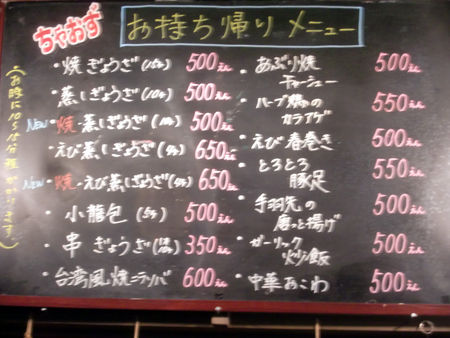 ちゃおず
お持ち帰り メニュー
(お時に10〜15分程かかります)
・焼ぎょうざ 500えん
・蒸しぎょうざ(10ヶ) 500えん
NEW・焼・蒸しぎょうざ 500えん
・えび蒸しぎょうざ 650えん
NEW・焼・えび蒸しぎょうざ 650えん
・小籠包 500えん
・串ぎょうざ 350えん
・台湾風焼ニラソバ 600えん
・あぶり焼チャーシュー 500えん
・ハーブ鶏のカラアゲ 550えん
・えび春巻き 500えん
・とろとろ豚足 550えん
・手羽先の磨っと揚げ 500えん
・ガーリック炒飯 500えん
・中華おこわ 500えん